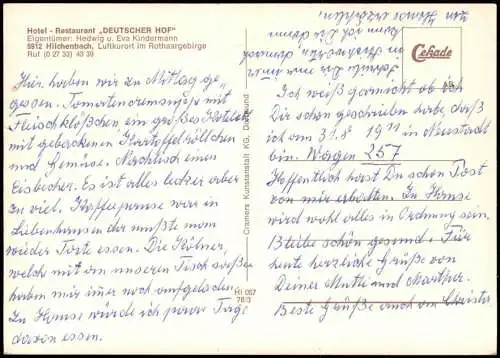 Hotel - Restaurant „DEUTSCHER HOF"
Eigentümer: Hedwig u. Eva Kindermann
5912 Hilchenbach, Luftkurort im Rothaargebirge
Ruf (0 27 33) 43 39
Hier haben wir zu Mittag ge-
gessen. Tomatencremsuppe mit
Fleischklößchen, ein großes Kotelett
mit gebackenen Kartoffelröllchen
und Gemüse. Nachtisch einen
Eisbecher. Es ist alles lecker aber
zu viel. Kaffepause war in
Liebenhausen da mußte man
wieder Torte essen. Die Kölner,
welch mit an unseren Tisch saßen
haben mir immer noch aufgeladen.
In Hause würde ich paar Tage
davon essen.
Cramers Kunstanstalt KG, Dortmund
Hi 067
76/3
Cekade
Ich weiß garnicht ob ich
Dir schon geschrieben habe, daß
ich am 31.8 19 in Neustadt
bin. Wagen 257
Hoffentlich hast Du schon Post
von mir erhalten. In Hause
wird wohl alles in Ordnung sein.
Bleibe schön gesund. Für
heute herzliche Grüße von
Deiner Mutti und Marthel.
Beste Grüße auch an Christa